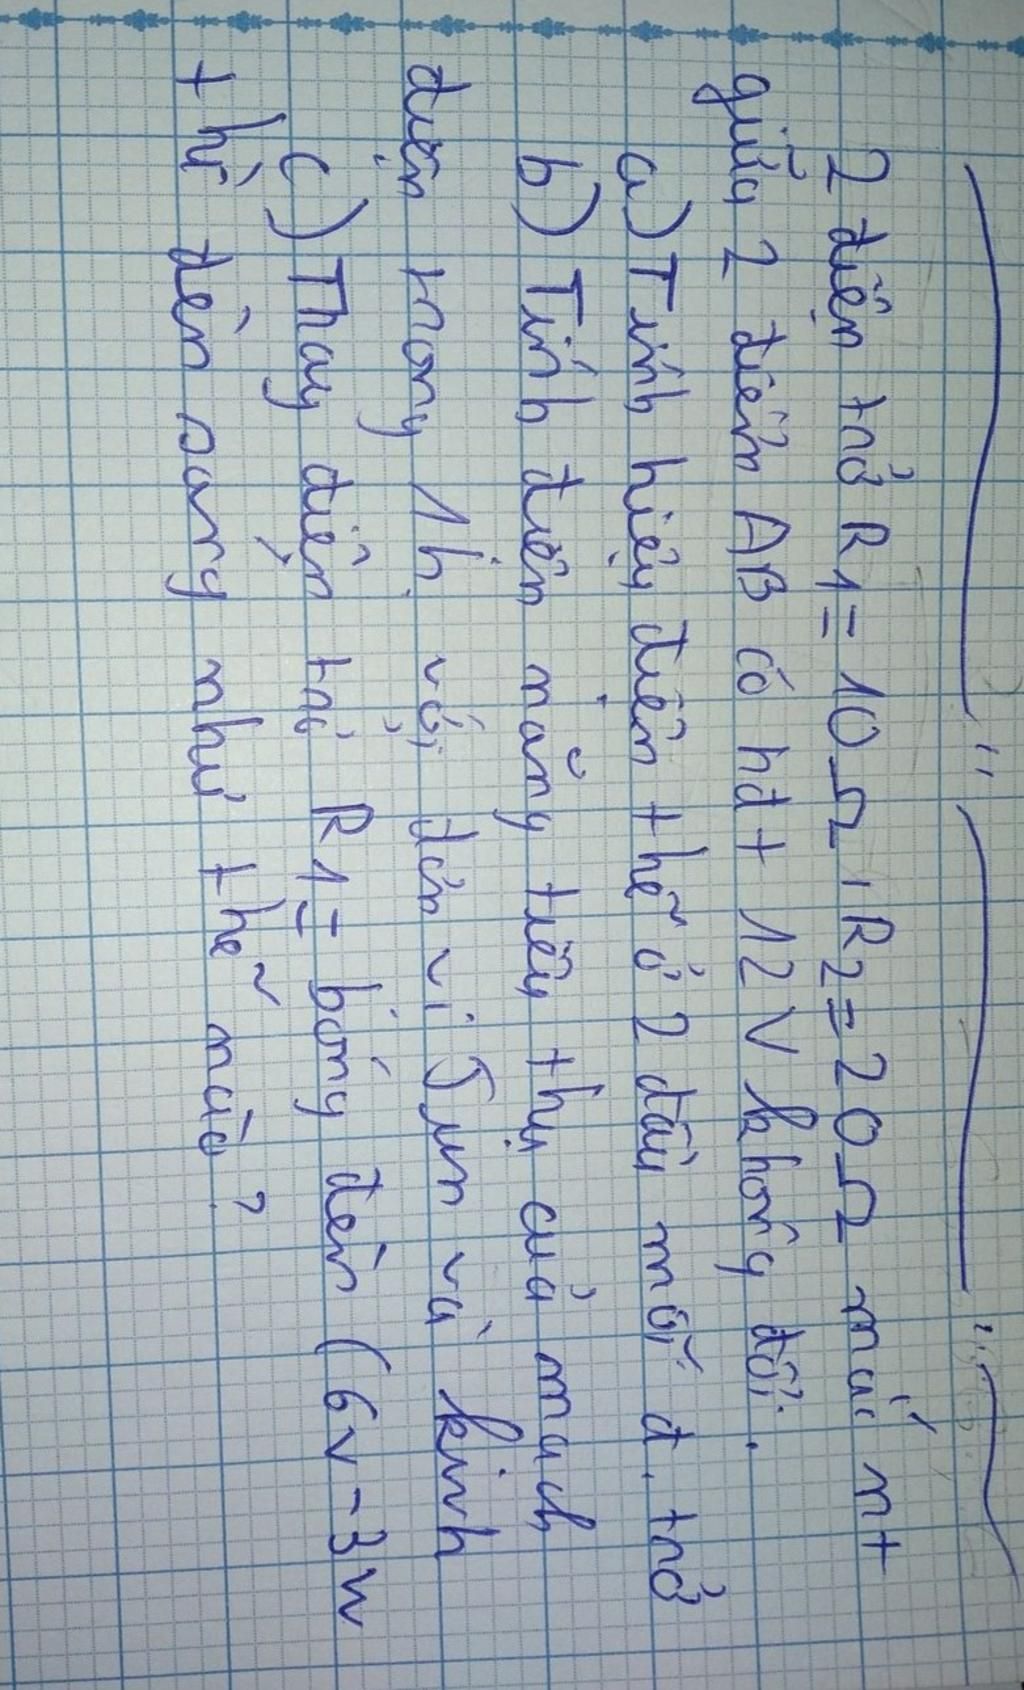 2 điện trở R1 = 10Ω, R2 = 20Ω mắc nt
giữa 2 điểm AB có hđt 12V không đổi.
a) Tính hiệu điện thế ở 2 đầu mỗi đ. trở
b) Tính điện năng tiêu thụ của mạch
điện trong 1h với đơn vị Jun và kinh
c) Thay điện trở R1 = bóng đèn (6v - 3w
thì đèn sáng như thế nào?